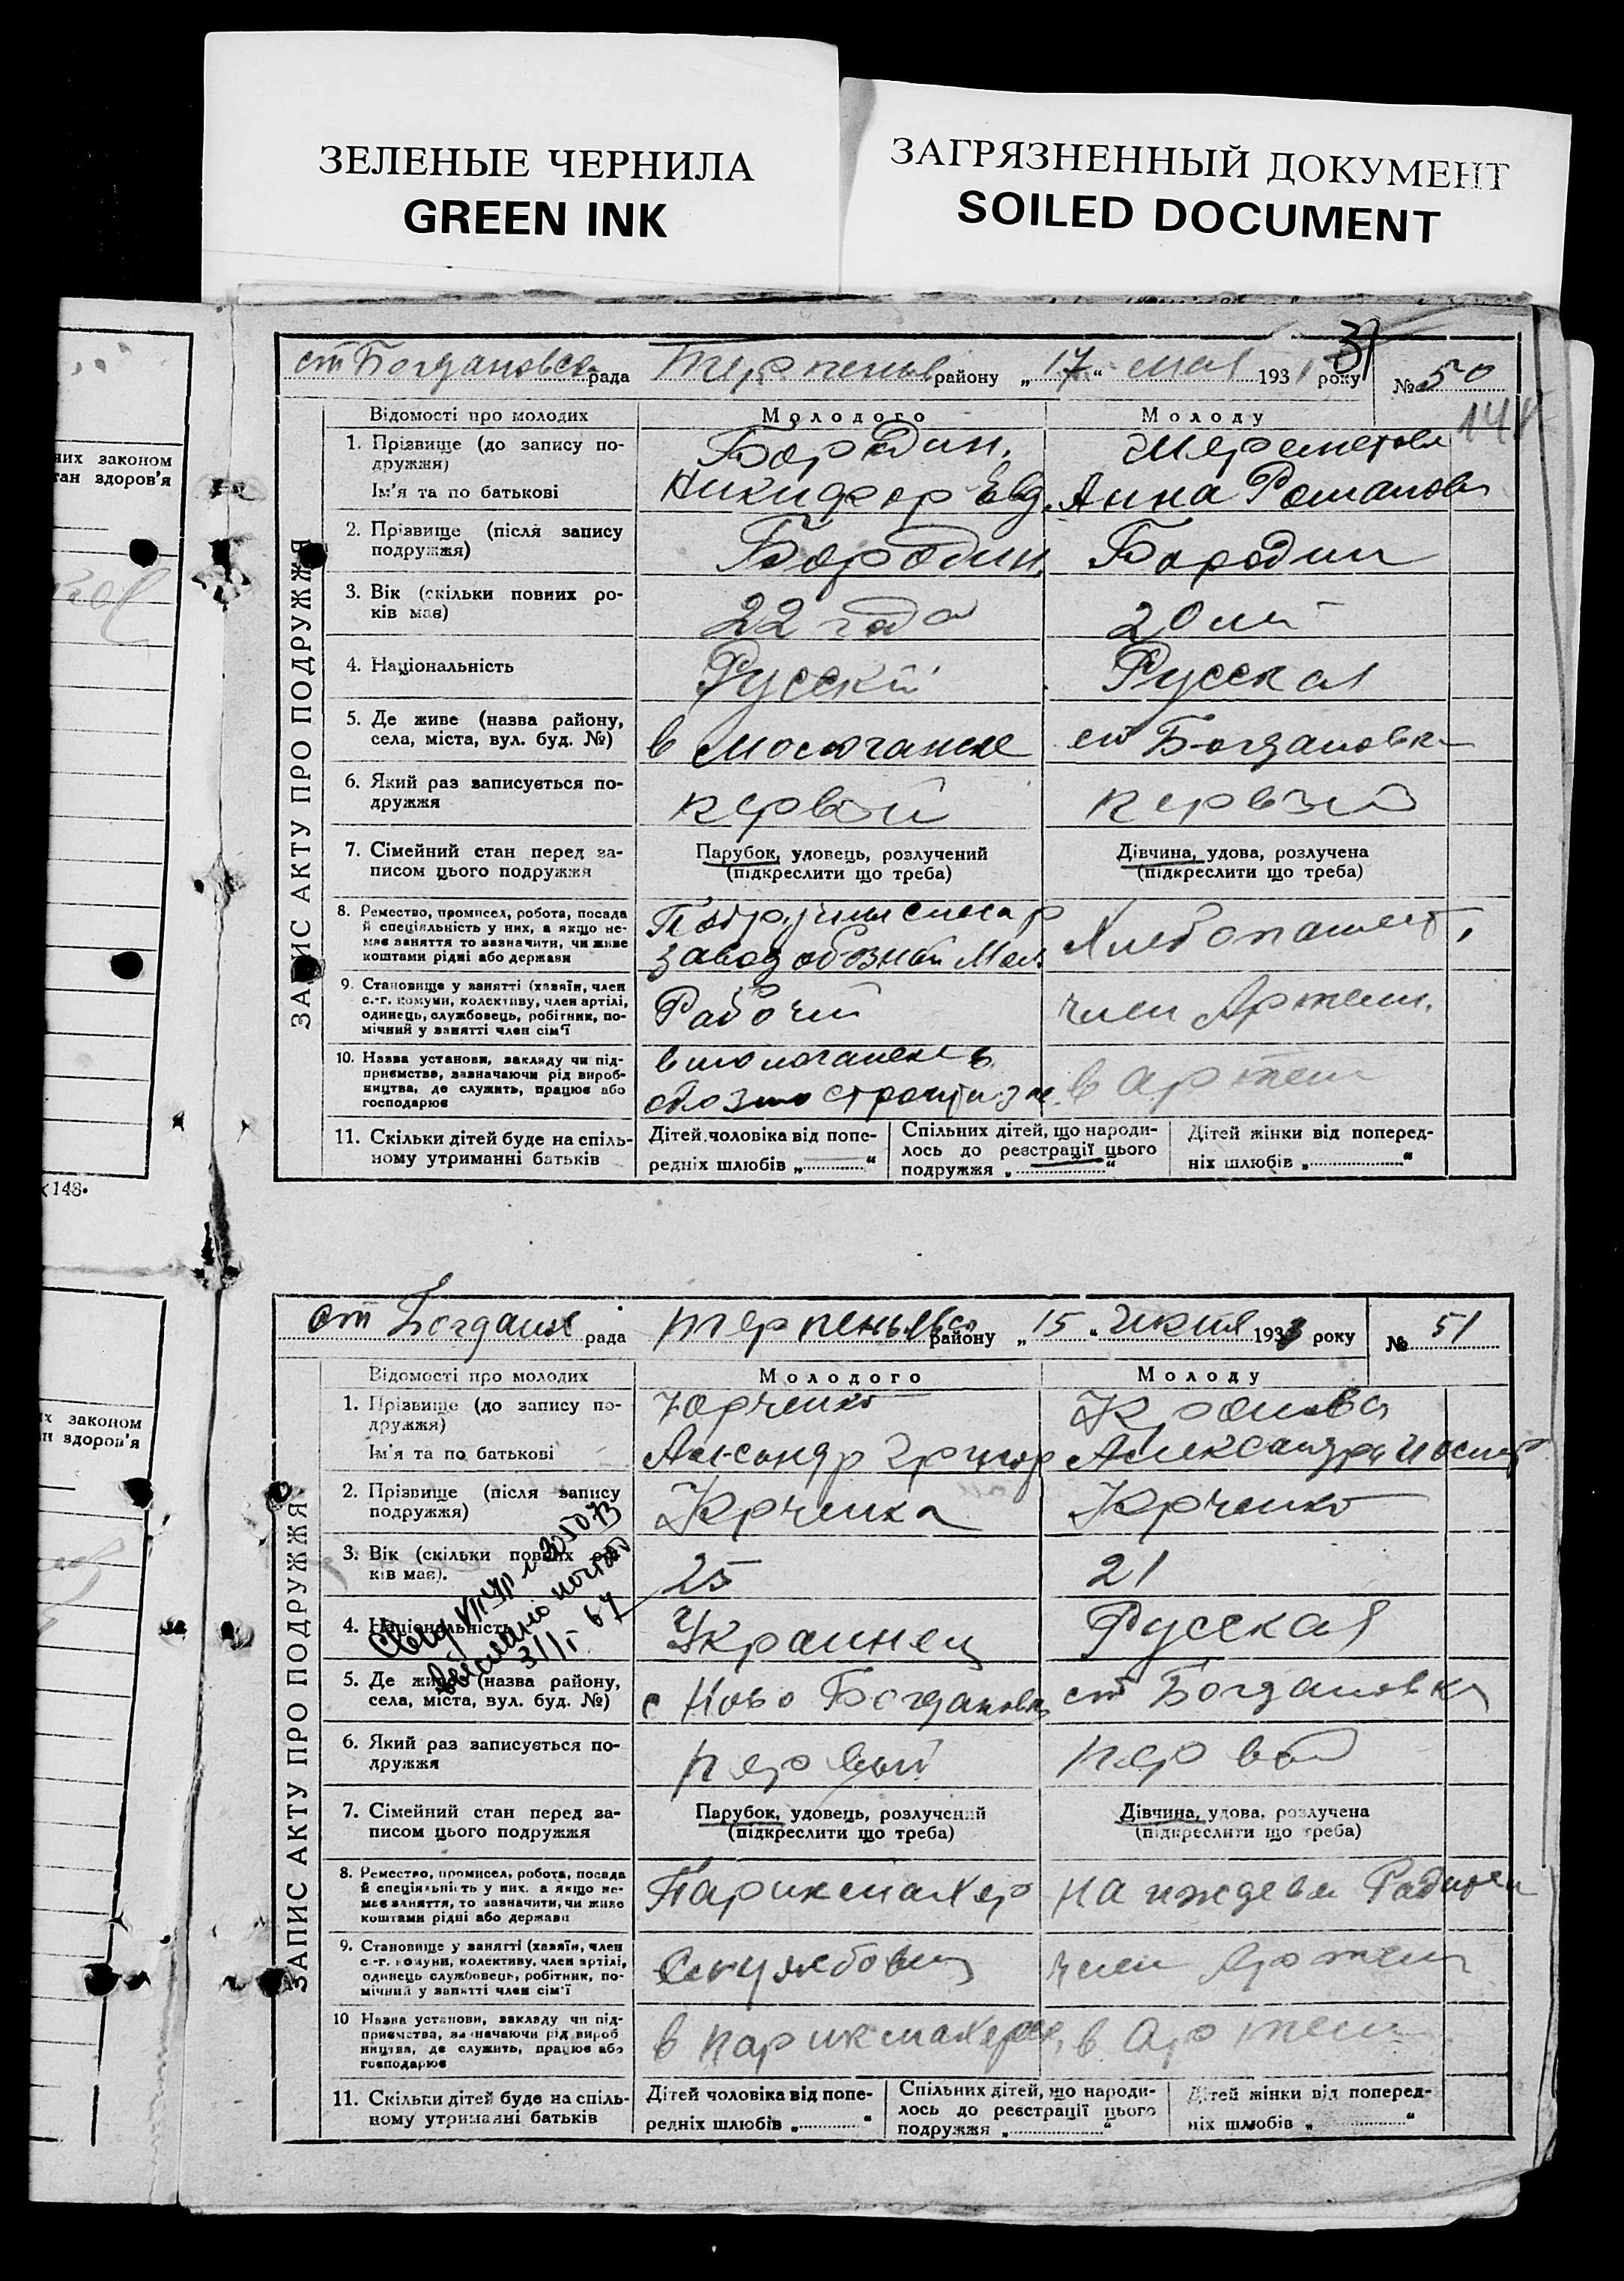 ЗЕЛЕНЫЕ ЧЕРНИЛА
GREEN INK
ЗАГРЯЗНЕННЫЙ ДОКУМЕНТ
SOILED DOCUMENT
них законом
тан здоров'я
148.
их законом
н здоров'я
ЗАПИС АКТУ ПРО ПОДРУЖЖЯ
ст Богдановск рада району „17“ мая 193 року № 50
Відомості про молодих Молодого Молоду
1. Прізвище (до запису по-
дружжя)
Бородин.
Ім'я та по батькові
Никифор Евд. Анна Романов
2. Прізвище (після запису
подружжя)
Бородин Бородин
3. Вік (скільки повних ро-
ків має)
22 года 20
4. Національність
Русский Русская
5. Де живе (назва району,
села, міста, вул. буд. №)
в ст Богдановка
6. Який раз записується по-
дружжя
первый первый
7. Сімейний стан перед за-
писом цього подружжя
Парубок, удовець, розлучений
(підкреслити що треба)
Дівчина, удова, розлучена
(підкреслити що треба)
8. Ремество, промисел, робота, посада
й спеціяльність у них, а якщо не-
має заняття то зазначити, чи живе
коштами рідні або держави
завод
9. Становище у занятті (хазяїн, член
с.-г. комуни, колективу, член артілі,
одинець, службовець, робітник, по-
мічний у занятті член сім'ї
Рабочий член Артели.
10. Назва установи, закладу чи під-
приємства, зазначаючи рід вироб-
ництва, де служить, працює або
господарює
в артели
11. Скільки дітей буде на спіль-
ному утриманні батьків
Дітей чоловіка від попе-
редніх шлюбів „..........“
Спільних дітей, що народи-
лось до реєстрації цього
подружжя „..........“
Дітей жінки від поперед-
ніх шлюбів „..........“
ЗАПИС АКТУ ПРО ПОДРУЖЖЯ
ст рада району „15“ 1933 року № 51
Відомості про молодих Молодого Молоду
1. Прізвище (до запису по-
дружжя)
Юрченко
Ім'я та по батькові
Александр Григор Александра
2. Прізвище (після запису
подружжя)
Юрченко Юрченко
3. Вік (скільки повних ро-
ків має).
25 21
4. Національність
Украинец Русская
5. Де живе (назва району,
села, міста, вул. буд. №)
с Ново Богдановка ст Богдановка
6. Який раз записується по-
дружжя
первый первый
7. Сімейний стан перед за-
писом цього подружжя
Парубок, удовець, розлучений
(підкреслити що треба)
Дівчина, удова, розлучена
(підкреслити що треба)
8. Ремество, промисел, робота, посада
й спеціяльність у них, а якщо не-
має заняття, то зазначити, чи живе
коштами рідні або держави
Парикмахер на иждевен Родител
9. Становище у занятті (хазяїн, член
с.-г. комуни, колективу, член артілі,
одинець службовець, робітник, по-
мічний у занятті член сім'ї
член Артели
10 Назва установи, закладу чи під-
приємства, зазначаючи рід вироб
ництва, де служить, працює або
господарює
в парикмахерск. в Артели
11. Скільки дітей буде на спіль-
ному утриманні батьків
Дітей чоловіка від попе-
редніх шлюбів „..........“
Спільних дітей, що народи-
лось до реєстрації цього
подружжя „..........“
Дітей жінки від поперед-
ніх шлюбів „..........“